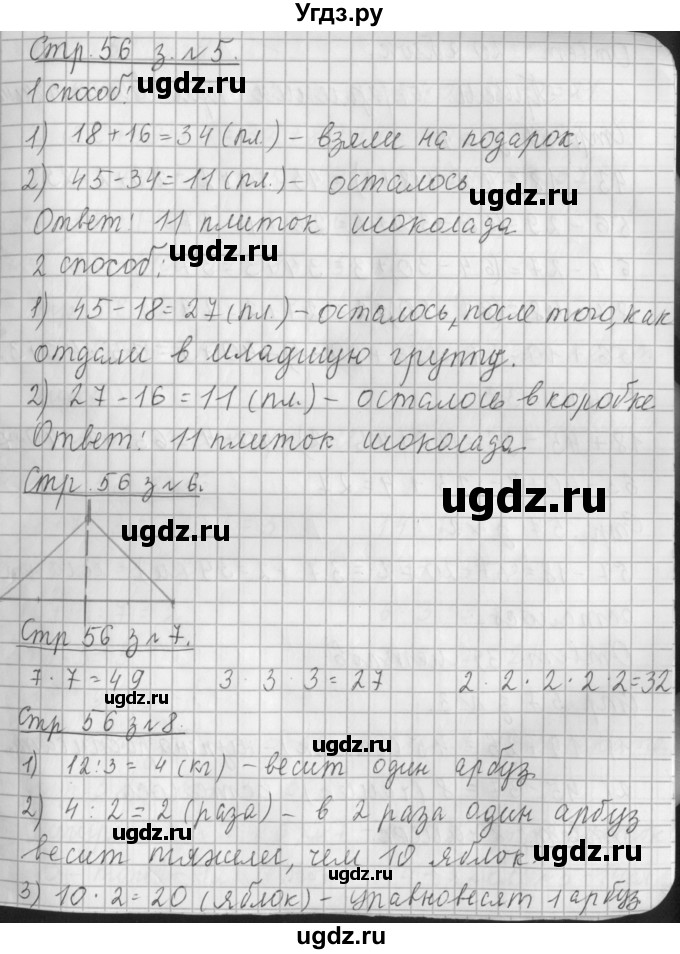 Угдз.ру
Стр. 56 з. №5.
ugdz.ru
1 способ:
1) 18+16=34 (пл.) – взяли на подарок.
2) 45-34=11 (пл.) – осталось
ugdz.ru
Ответ: 11 плиток шоколада
ugdz.ru
2 способ:
1) 45-18=27 (пл.) – осталось, после того, как
ugdz.ru
отдали в младшую группу.
ugdz.ru
2) 27-16=11 (пл.) – осталось в коробке.
Ответ: 11 плиток шоколада.
Стр. 56 з №6.
ugdz.ru
ugdz.ru
Стр 56 з №7.
7 · 7 = 49 3 · 3 · 3 = 27 2 · 2 · 2 · 2 · 2=32
ugdz.ru
Стр 56 з №8.
ugdz.ru
1) 12:3= 4 (кг) – весит один арбуз
2) 4 : 2 = 2 (раза) – в 2 раза один арбуз
ugdz.ru
весит тяжелее, чем 10 яблок.
ugdz.ru
ugdz.ru
3) 10 · 2= 20 (яблок) – уравновесят 1 арбуз
ugdz.ru